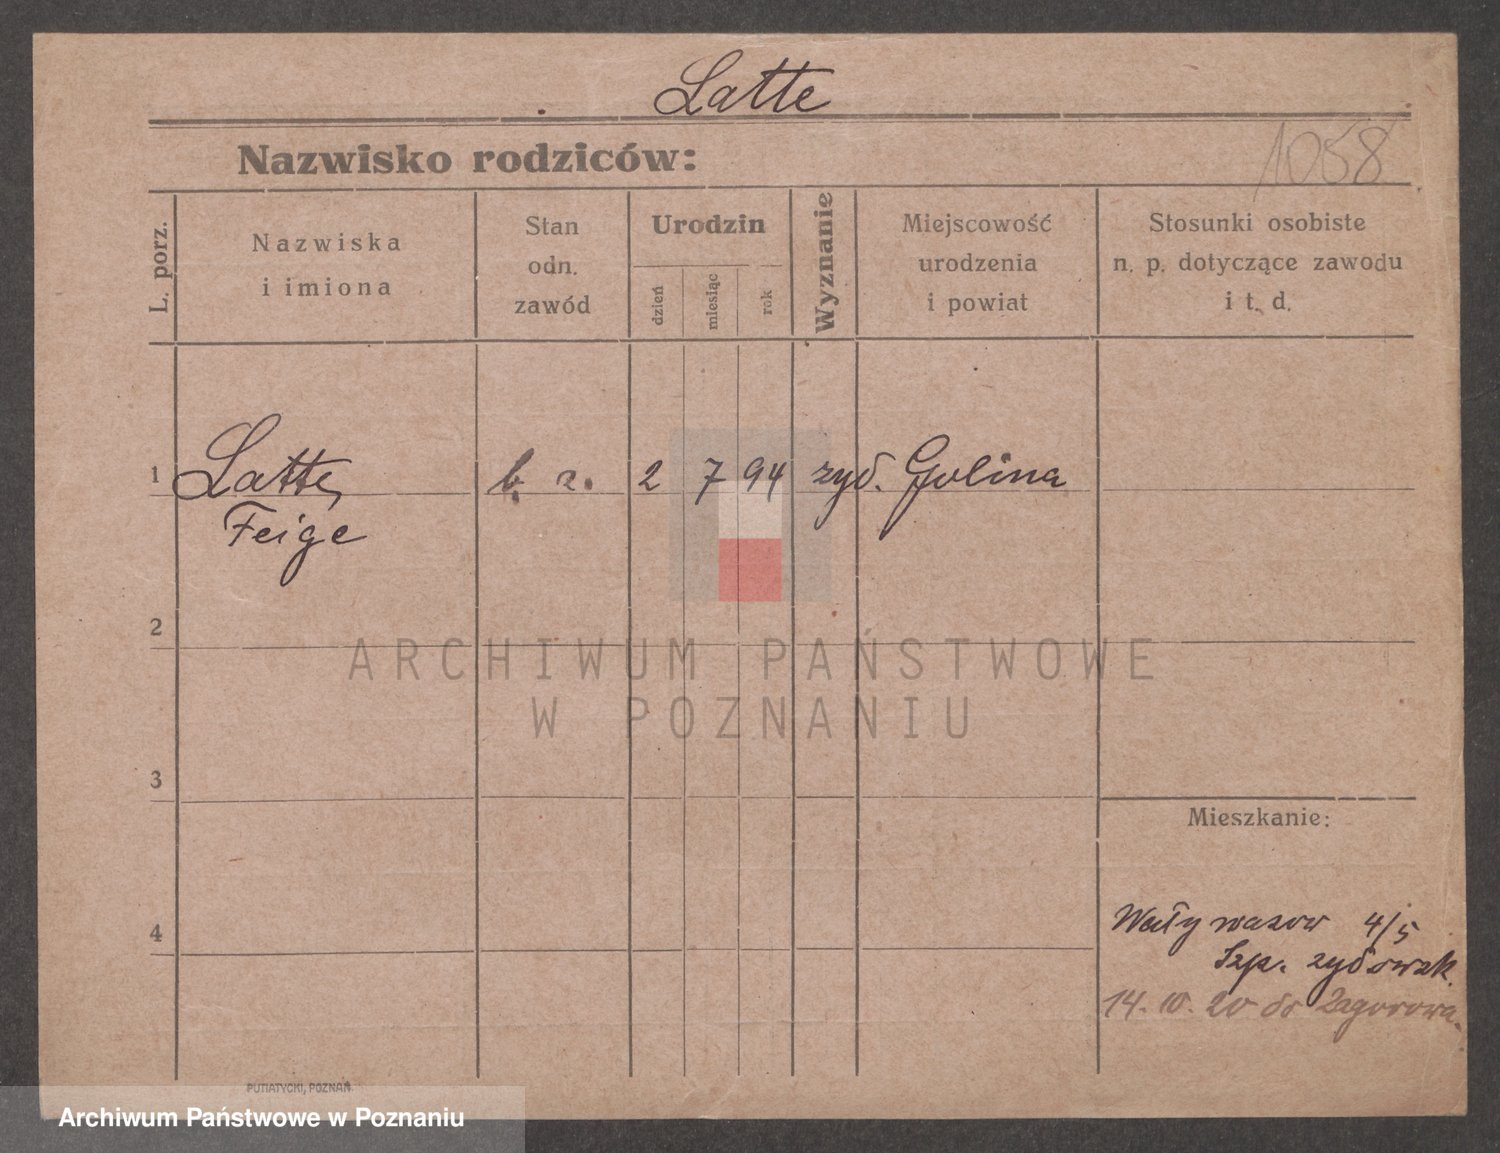 Latte
Nazwisko rodziców:
1058
L. porz.
Nazwiska
i imiona
Stan
odn.
zawód
Urodzin
dzień
miesiąc
rok
Wyznanie
Miejscowość
urodzenia
i powiat
Stosunki osobiste
n. p. dotyczące zawodu
i t. d.
1 Latte, b. z. 2 7 94 żyd. Golina
Feige
2
ARCHIWUM PAŃSTWOWE
W POZNANIU
3
Mieszkanie:
4
Wały wazow 4/5
Szp. żydowsk.
14. 10. 20 do Zagorowa.
PUTIATYCKI, POZNAŃ
Archiwum Państwowe w Poznaniu